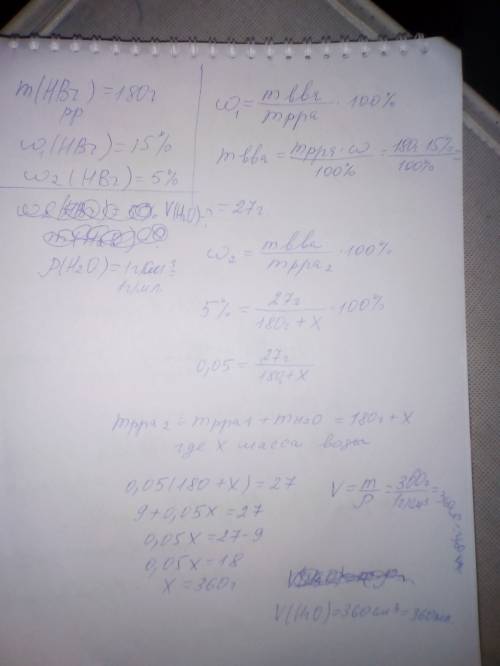 m(HBr) = 180г
рр
ω₁(HBr) = 15%
ω₂(HBr) = 5%
V(H₂O) - ?
ρ(H₂O) = 1г/см³
1г/мл
ω₁ = m вва / m рра · 100%
m вва = m рра · ω / 100% = 180г · 15% / 100% =
= 27г
ω₂ = m вва / m рра₂ · 100%
5% = 27г / 180г + X · 100%
0,05 = 27г / 180 + X
m рра₂ = m рра₁ + m H₂O = 180г + X
где X масса воды
0,05(180 + X) = 27
9 + 0,05X = 27
0,05X = 27 - 9
0,05X = 18
X = 360г
V = m / ρ = 360г / 1г/см³ =
V(H₂O) = 360см³ = 360мл